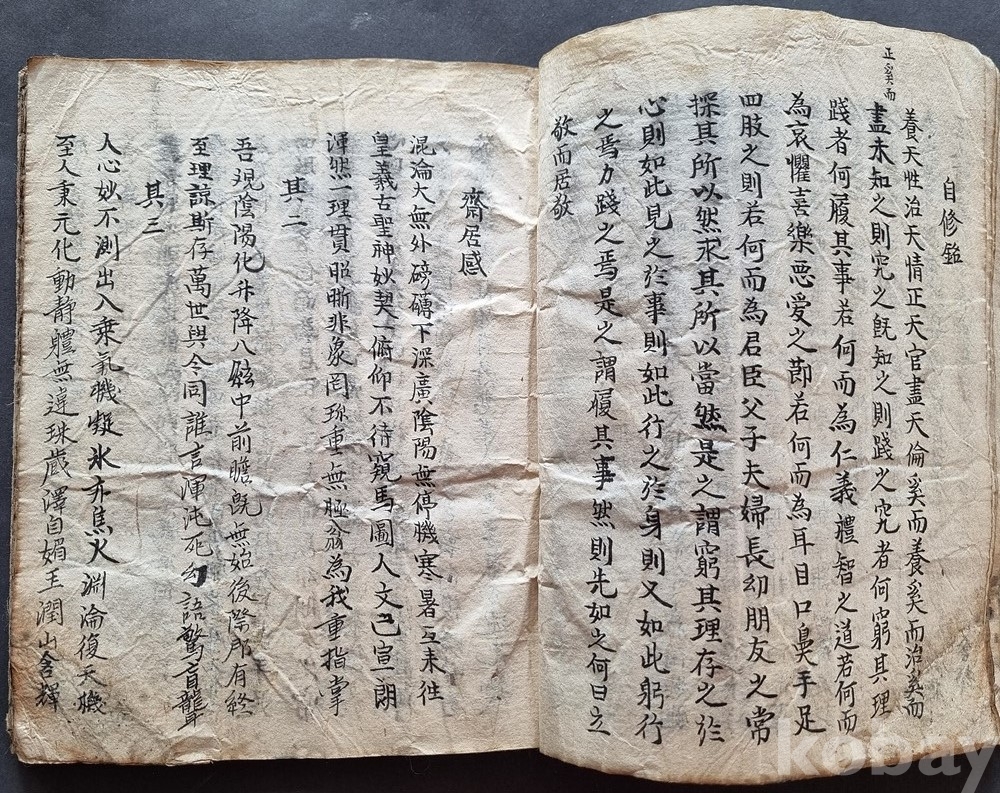 自修銘
養天性治天情正天官盡天倫奚而養奚而治奚而
正奚而
盡未知之則究之旣知之則踐之究者何窮其理
踐者何履其事若何而為仁義禮智之道若何而
為哀懼喜樂惡愛之節若何而為耳目口鼻手足
四肢之則若何而為君臣父子夫婦長幼朋友之常
探其所以然求其所以當然是之謂窮其理存之於
心則如此見之於事則如此行之於身則又如此躬行
之焉力踐之焉是之謂履其事然則先如之何曰立
敬而居敬
齋居感
混淪大無外磅礴下深廣陰陽無停機寒暑互来徃
皇羲古聖神妙契一俯仰不待窺馬圖人文已宣朗
渾然一理貫昭晣非象罔珎重無極翁為我重指掌
其二
吾現陰陽化升降八紘中前瞻旣無始後際那有終
至理諒斯存萬世與今同誰言渾沌死幻語驚盲聾
其三
人心妙不測出入乗氣機凝氷亦焦火淵淪復天機
至人秉元化動静軆無違珠藏澤自媚玉潤山含輝
kobay